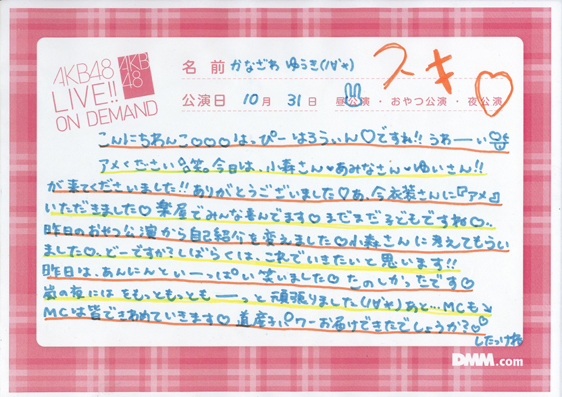 AKB48
LIVE!!
ON DEMAND
AKB
48
名前 かなざわ ゆうき(ﾉ∀`*)
スキ♡
公演日 10月 31日 昼公演・おやつ公演・夜公演
こんにちわんこ○○○は、ぴーはろうぃん♡ですね!! うぁーい
アメください 笑。今日は、小森さん♥あみなさん♥ゆいさん!!
が来てくださいました!! ありがとうございました♡あ、今衣装さんに『アメ』
いただきました♡楽屋でみんな喜んでます♡まだまだ子どもですね♡..
昨日のおやつ公演から自己紹介を変えました♡小森さんに考えてもらい
ました♡..どーですか?しばらくは、これでいきたいと思います!!
昨日は、あんにんといーっぱい笑いました♡たのしかったです♡
嵐の夜にはをもっともっともーーっと頑張りました(ﾉ∀`*)あと…MCも↘
MCは皆できめていきます♡道産子パワーお届けできたでしょうか?♡
したっけね
DMM.com